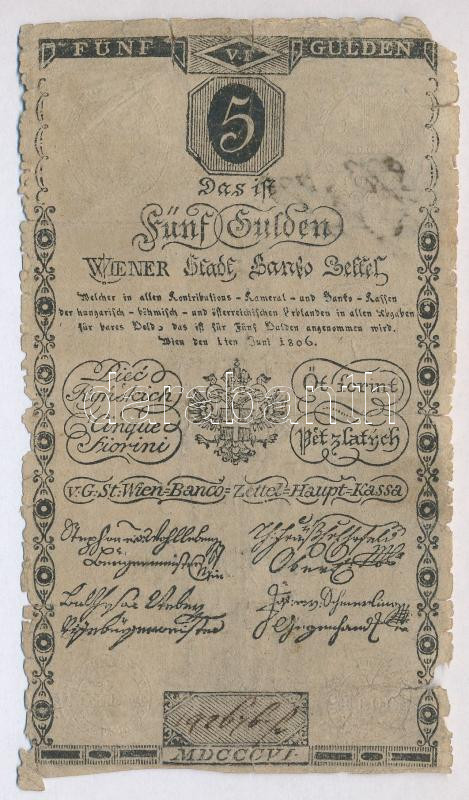 FÜNF V.f GULDEN
5
Das ist
Fünf Gulden
WIENER Stadt Banko Zettel
Welcher in allen Kontributions-Kameral-und Banko-Kassen
der hungarisch-böhmisch-und österreichischen Erblanden in allen Abgaben
für bares Geld, das ist für Fünf Gulden angenommen wird.
Wien den 1ten Juni 1806.
Pięć
Ryńskich
Cinque
Fiorini
Öt forint
Pět zlatých
darabanth
v. G. St. Wien=Banco=Zettel=Haupt=Kassa
Stephan
Bürgermeister
Vizebürgermeister
MDCCCVI